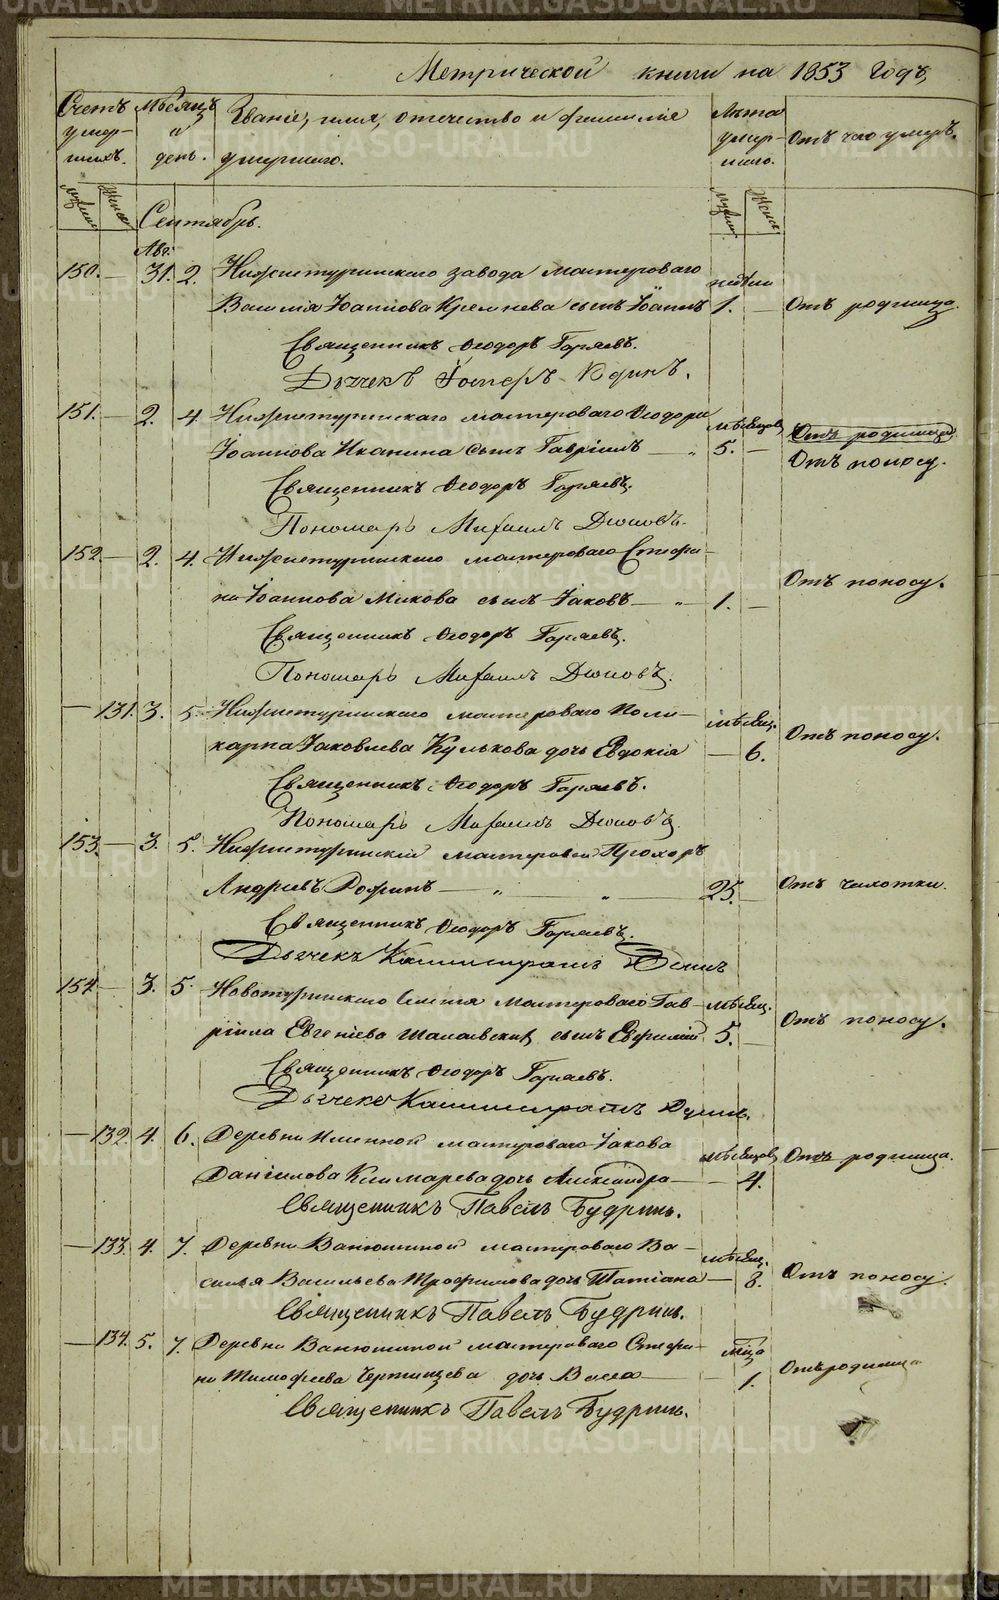 Метрической книги на 1853 годъ,
Счетъ умер-шихъ. Мѣсяцъ и день. Званіе, имя, отечество и фамилія умершаго. Лѣта умер-шаго. Отъ чего умеръ.
Сентябрь.
Авг:
150. — 31. 2. Нижнетуринскаго завода мастероваго недѣли
Василія Іоаннова Кремнева сынъ Іоаннъ 1. — Отъ родимца.
Священникъ Ѳеодоръ Горяевъ.
Дьячекъ
151. — 2. 4. Нижнетуринскаго мастероваго Ѳеодора мѣсяцовъ Отъ родимца
Іоаннова сынъ Гавріилъ — „ 5. — Отъ поносу.
Священникъ Ѳеодоръ Горяевъ.
Пономарь Михаилъ Дюковъ.
152. — 2. 4. Нижнетуринскаго мастероваго Стефа-
на Іоаннова сынъ Іаковъ — „ — 1. — Отъ поносу.
Священникъ Ѳеодоръ Горяевъ.
Пономарь Михаилъ Дюковъ.
— 131. 3. 5. Нижнетуринскаго мастероваго Поли- мѣсяц.
карпа Іаковлева Кулькова дочь Евдокія — 6. Отъ поносу.
Священникъ Ѳеодоръ Горяевъ.
Пономарь Михаилъ Дюковъ.
153. — 3. 5. Нижнетуринскій мастеровой Прохоръ
Андреевъ — „ „ — 25. Отъ чахотки.
Священникъ Ѳеодоръ Горяевъ.
Дьячекъ
154 — 3. 5. Новотуринскаго мастероваго Гав- мѣсяц.
ріила Евгеніева сынъ Евфимій 5. — Отъ поносу.
Священникъ Ѳеодоръ Горяевъ.
Дьячекъ
— 132. 4. 6. Деревни Именной мастероваго Іакова мѣсяцовъ Отъ родимца.
Даніилова дочь Александра — — 4.
Священникъ Павелъ Будринъ.
— 133. 4. 7. Деревни Ванюшиной мастероваго Ва- мѣсяц.
силья Васильева Трофимова дочь Татіана — 8. Отъ поносу.
Священникъ Павелъ Будринъ.
— 134. 5. 7. Деревни Ванюшиной мастероваго Стефа-
на Тимофеева дочь Васса — 1. Отъ родимца
Священникъ Павелъ Будринъ.
METRIKI.GASO-URAL.RU